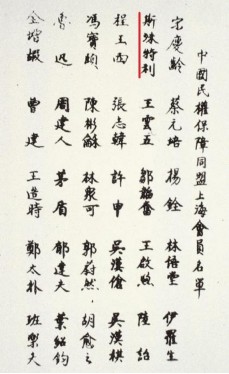 中國民權保障同盟上海會員名單
宋慶齡 蔡元培 楊銓 林語堂 伊羅生
斯沫特利 王雲五 鄒韜奮 王啟煦 陸詒
張志韓 許申 吳漢祺
陳彬龢 林眾可 郭蔚然 胡愈之
魯迅 周建人 茅盾 郁達夫 葉紹鈞
全增嘏 曹建 王造時 鄭太朴 班樂夫